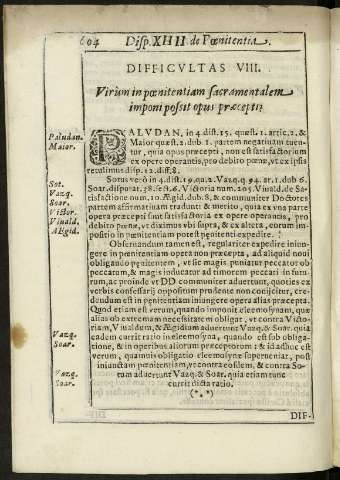 604 Disp. XHII de Pœnitentia.
DIFFICVLTAS VIII.
Vtrum in pœnitentiam sacramentalem
imponi possit opus præcepti?
Paludan.
Maior.
PALVDAN. in 4. dist. 15. quæst. 1. artic. 2. &
Maior quæst. 2. dub. 1. partem negatiuam tuen-
tur, quia opus præcepti, non est satisfactorium
ex opere operantis, pro debito pœnæ, vt ex ipsis
retulimus disp. 12. diff. 8.
Sot.
Vazq.
Soar.
Victor.
Viuald.
AEgid.
Sotus verò in 4. dist. 19. qu. 2. Vazq. q. 94. ar. 1. dub. 6.
Soar. disputat. 38. sect. 6. Victoria num. 205. Viuald. de Sa-
tisfactione num. 10. Ægid. dub. 8. & communiter Doctores
partem affirmatiuam tradunt: & meritò, quia ex vna parte
opera præcepti sunt satisfactoria ex opere operantis, pro
debito pœnæ, vt diximus vbi supra, & ex altera, eorum im-
positio in pœnitentiam potest pœnitenti expedire.
Obseruandum tamen est, regulariter expedire iniun-
gere in pœnitentiam opera non præcepta, ad aliquid noui
obligando pœnitentem, vt sic magis puniatur peccator ob
peccatum, & magis inducatur ad timorem peccati in futu-
rum, ac proinde vt DD communiter aduertunt, quoties ex
verbis confessarij oppositum prudenter non coijcitur, cre-
dendum est in pœnitentiam iniungere opera alias præcepta.
Quod etiam est verum, quando imponit eleemosynam, quæ
alias ob extremam necessitatem obligat, vt contra Victo-
riam, Viualdum, & Ægidium aduertunt Vazq. & Soar. quia
Vazq.
Soar.
eadem currit ratio in eleemosyna, quando est sub obliga-
tione, & in operibus aliorum præceptorum: & id adhuc est
verum, quamuis obligatio eleemosynæ superueniat, post
iniunctam pœnitentiam, vt contra eosdem, & contra So-
Vazq.
Soar.
tum aduertunt Vazq. & Soar. quia etiam tunc
currit dicta ratio.
(*,*)
DIF-